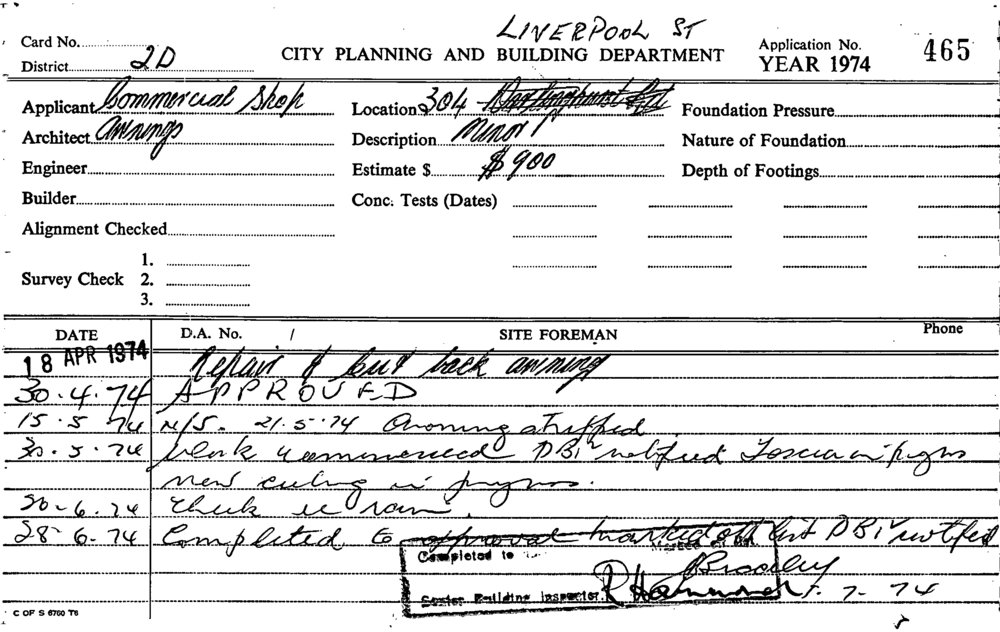 LIVERPOOL ST
Card No.
District 2D
CITY PLANNING AND BUILDING DEPARTMENT
Application No. 465
YEAR 1974
Applicant Commercial Shop
Location 304 Darlinghurst Rd
Foundation Pressure
Architect Awnings
Description Minor
Nature of Foundation
Engineer
Estimate $ $900
Depth of Footings
Builder
Conc. Tests (Dates)
Alignment Checked
Survey Check
1.
2.
3.
DATE
D.A. No. /
SITE FOREMAN
Phone
18 APR 1974 Repair & cut back awning
30.4.74 APPROVED
15.5.74 N/S. 21.5.74 Awning stripped
30.5.74 Work commenced DBI notified Fascia in progress
new ceiling in progress.
20.6.74 Check rain.
28-6.74 Completed to approval marked off list DBI notified
Completed to
Marked off list
Senior Building Inspector.
7.74
C OF S 6760 T6